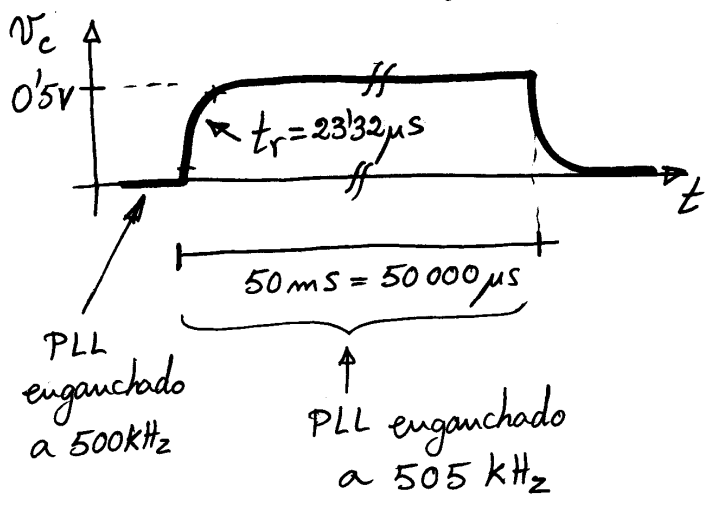 Vc
0'5V
tr = 23'32 μs
t
50 ms = 50 000 μs
PLL
enganchado
a 500KHz
PLL enganchado
a 505 KHz